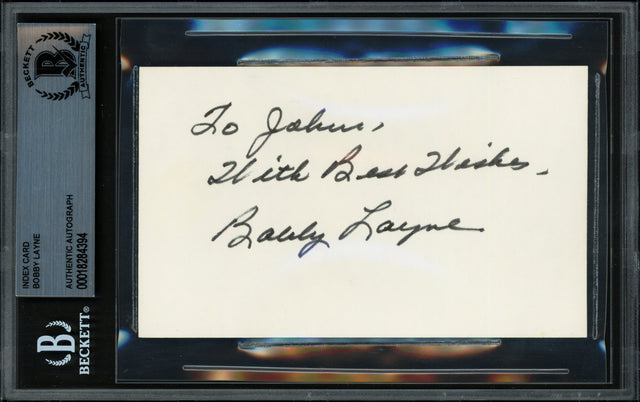 BECKETT
AUTHENTIC
INDEX CARD
BOBBY LAYNE
AUTHENTIC AUTOGRAPH
00018284394
BECKETT®
To John,
With Best Wishes,
Bobby Layne